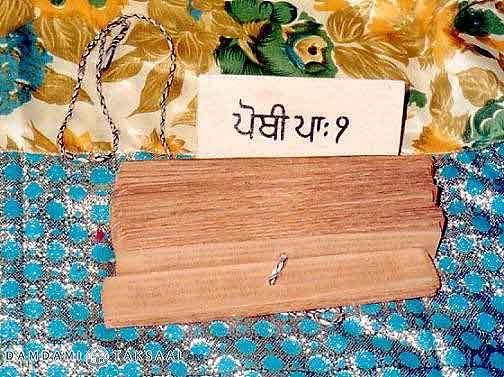 ਪੋਥੀ ਪਾਃ ੧
DAMDAMI TAKSAAL